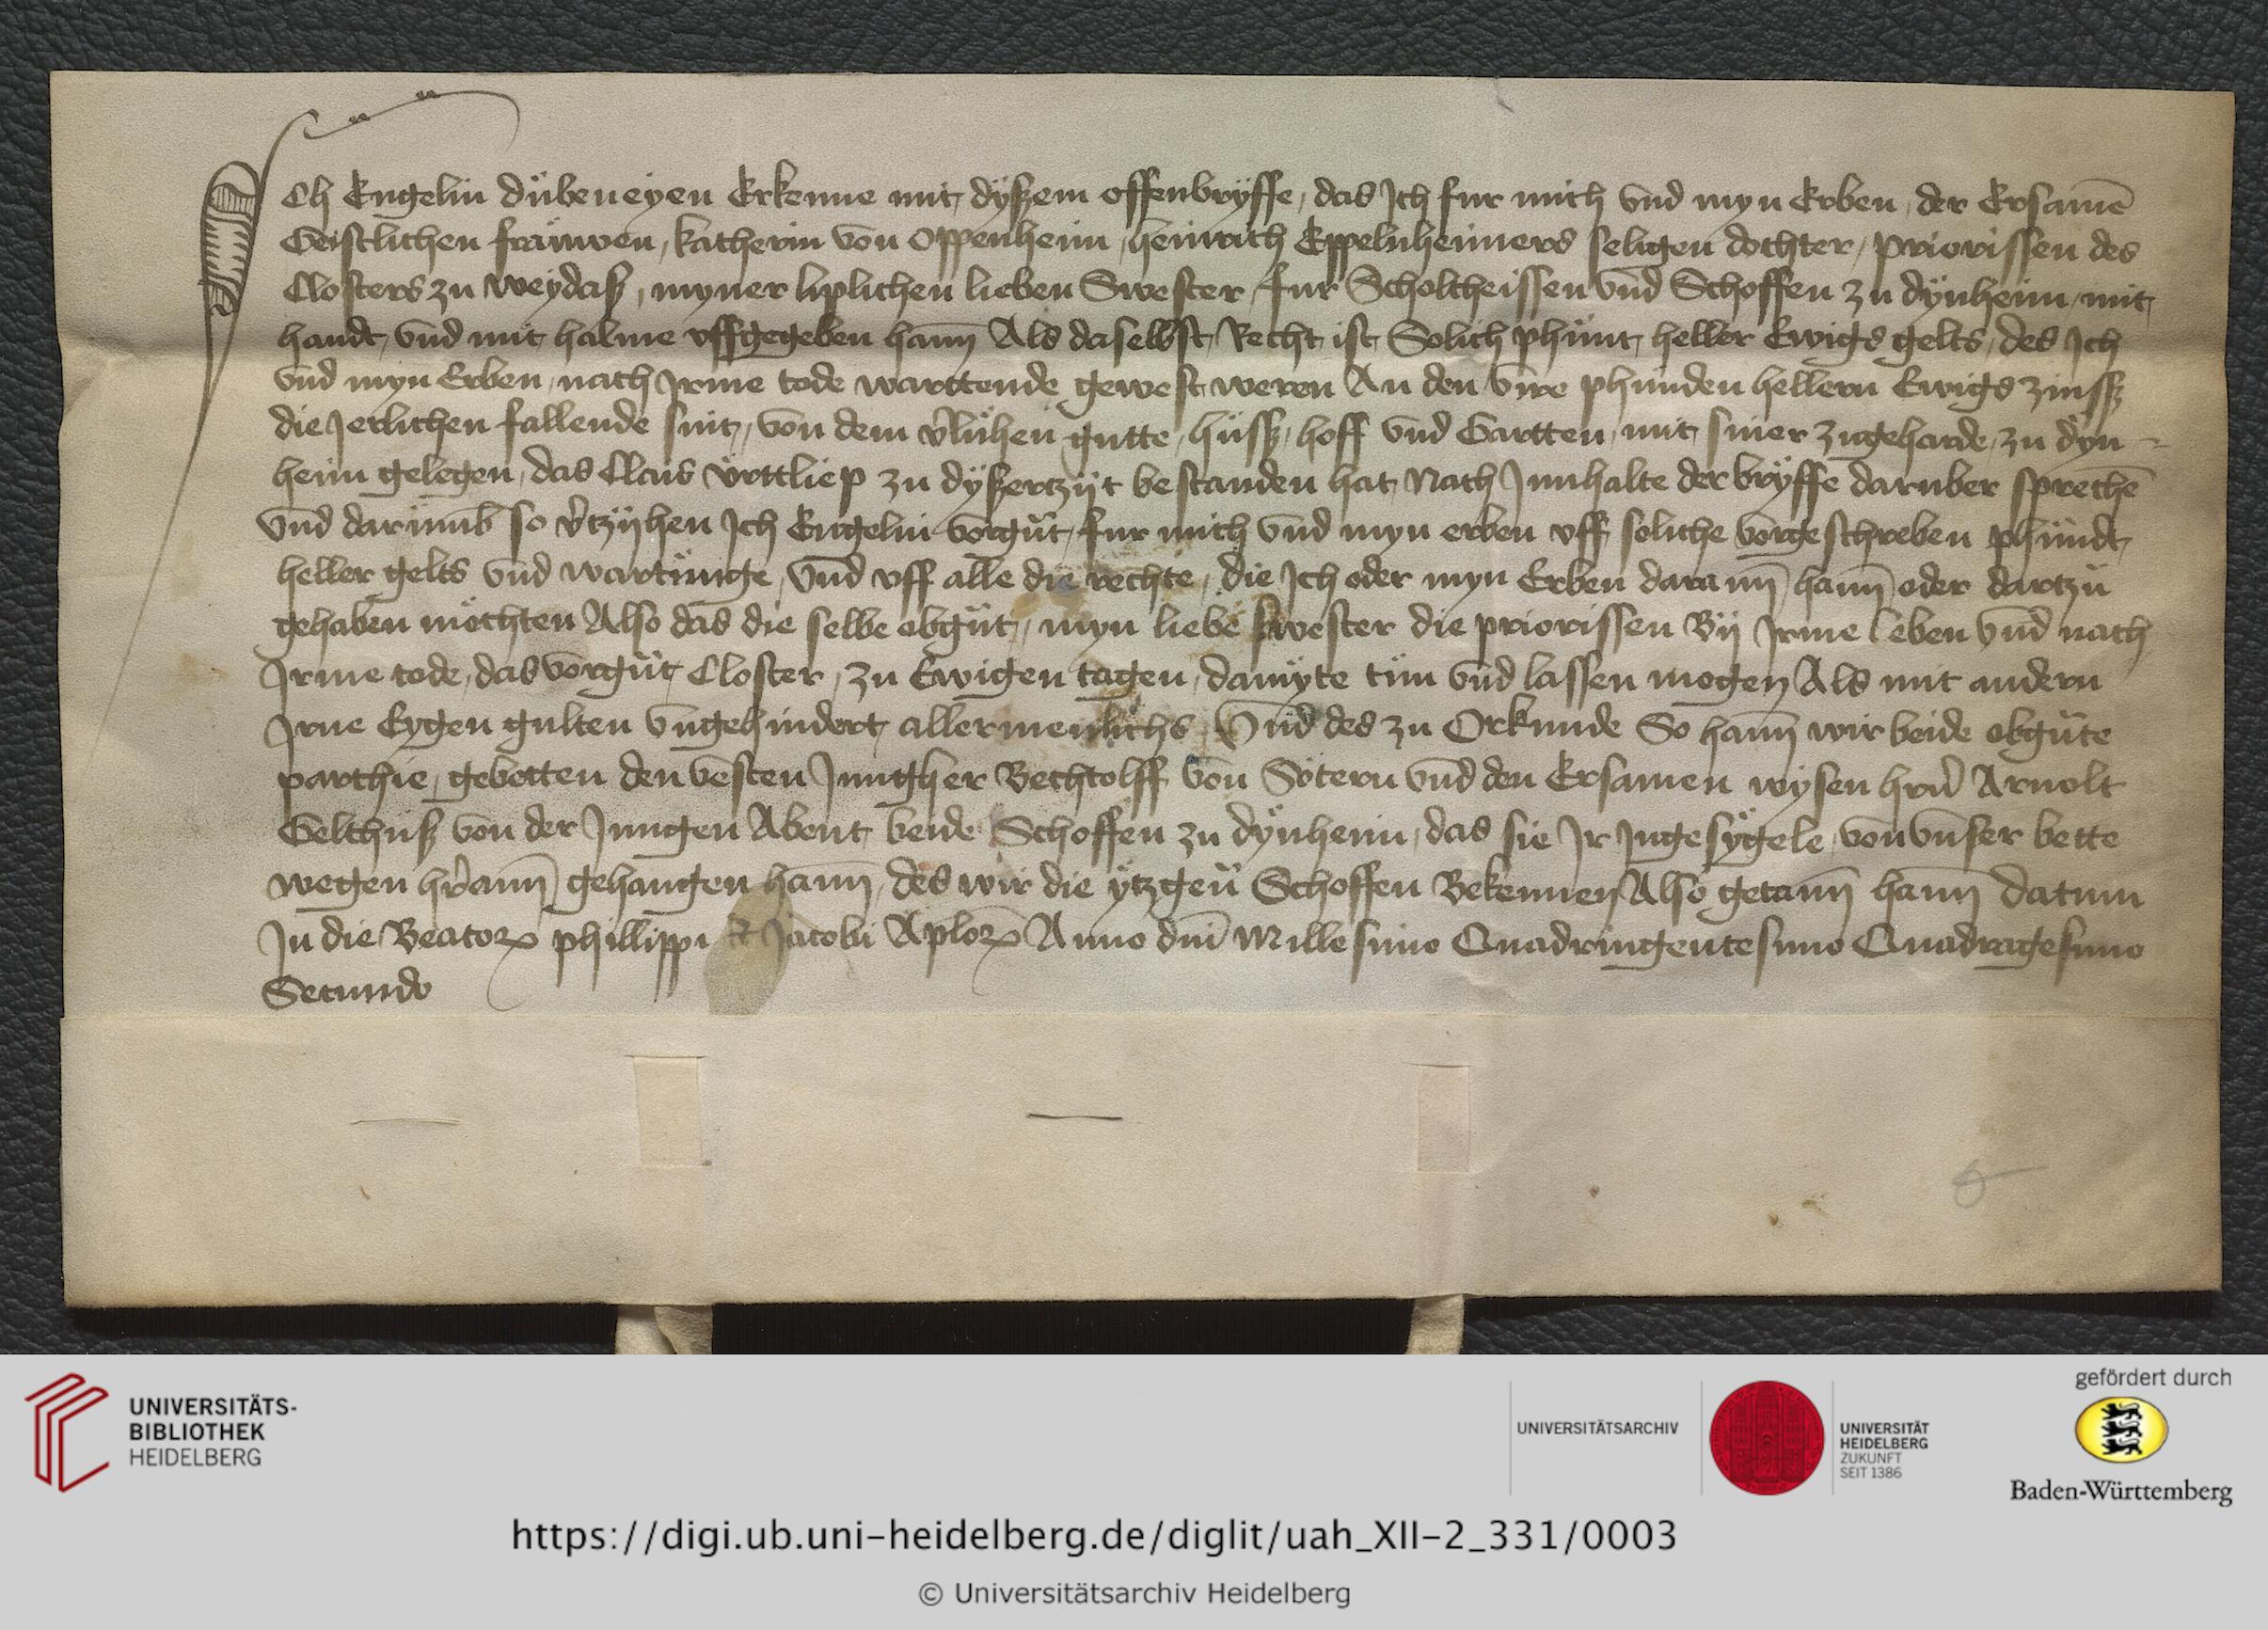 Ich Engelin dübeneÿen Erkenne mit dÿszem offenbrÿffe, das Ich fur mich vnd myn Erben, der Ersamē
Geistlichen fraüwen, katherin von Oppenheim, heinrich Eppelnheimers seligen dochter, priorissen des
Closters zu weÿdasz, myner liplichen lieben Swester, fur Scholtheissen vnd Schoffen zu dÿnheim, mit
handt, vnd mit halme vffgegeben hann̄ Als daselbst Recht ist Solich phünt heller Ewigs gelts, des Ich
vnd myn Erben, nach Irme tode warttende gewest weren An den vire phunden hellern Ewigs zinsz
die Jerlichen fallende sint, von dem v̓lühen gutte, hüsz, hoff vnd Gartten, mit siner zugeharde, zu dÿn-
heim gelegen, das Clais vrttliep zu dÿserzÿt bestanden hat, Nach Innhalte der brÿffe daruber sprechē
vnd darümb so v̓tzÿhen Ich Engelin vorgūt, fur mich vnd myn erben vff soliche vorgeschreben phündt
heller gelts vnd wartünge, vnd vff alle die rechte, die Ich oder myn Erben darann̄ hann̄ oder dartzü
gehaben möchten Also das die selbe obgūt, myn liebe swester die priorissen Bÿ Irme leben vnd nach
Irme tode, das vorgūt Closter, zu Ewigen tagen, damÿte tün vnd lassen mogen Als mit andern
Irne Eygen gulten vngehindert, allermenlichs Vnd des zu Orkunde So hann̄ wir beide obgūte
parthie, gebetten den vesten Jungher Bechtolff von Sötern vnd den Ersamen wÿsen hern̄ Arnolt
Gelthüsz von der Jungen Abent, beide Schoffen zu dÿnheim, das sie Ir Ingesÿgele, von vnser bette
wegen hr̓ann̄ gehangen hann̄, des wir die ÿtzgen̄ Schoffen Bekennen Also getann̄ hann̄ datum
In die Beatorꝝ phillippi et Jacobi Aplorꝝ Anno dnī Millesimo Quadringentesimo Quadragesimo
Secundo
UNIVERSITÄTS-
BIBLIOTHEK
HEIDELBERG
UNIVERSITÄTSARCHIV
UNIVERSITÄT
HEIDELBERG
ZUKUNFT
SEIT 1386
gefördert durch
Baden-Württemberg
https://digi.ub.uni-heidelberg.de/diglit/uah_XII-2_331/0003
© Universitätsarchiv Heidelberg